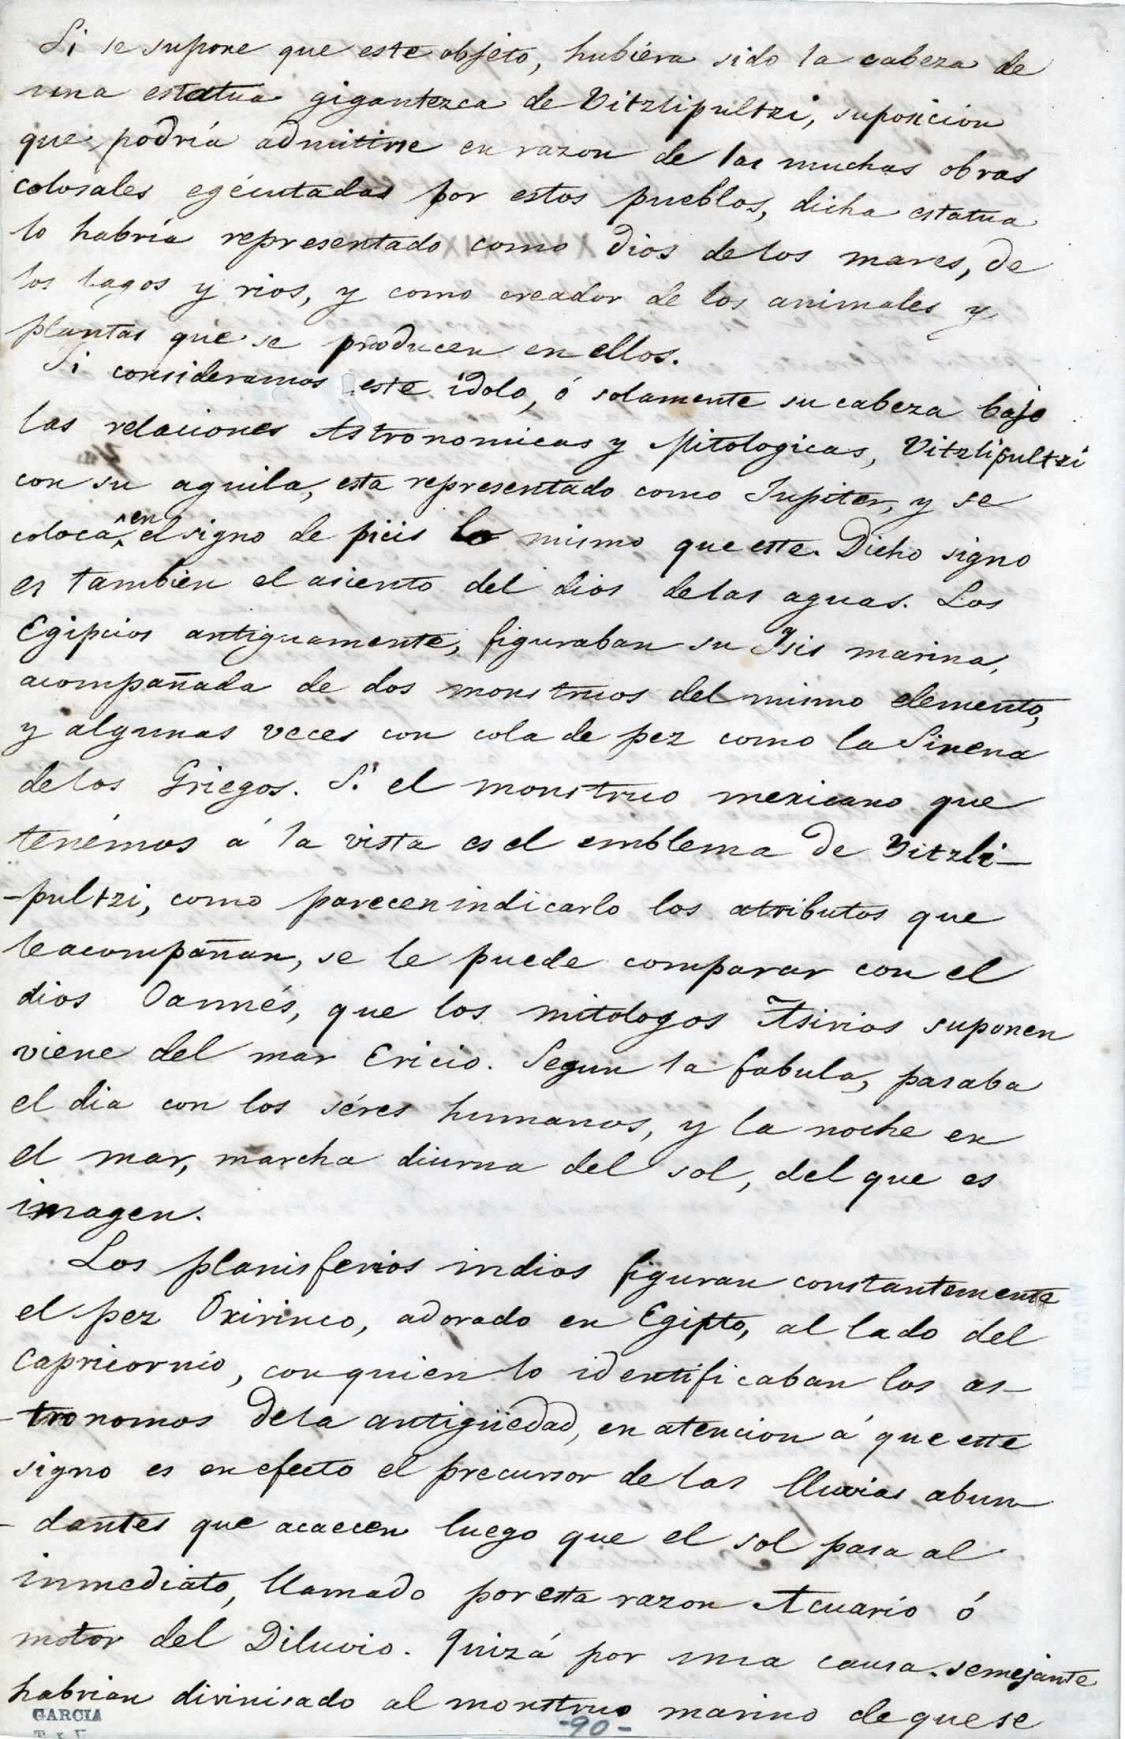 Si se supone que este objeto, hubiera sido la cabeza de
una estatua gigantezca de Vitzlipultzi, suposicion
que podría admitirse en razon de las muchas obras
colosales egécutadas por estos pueblos, dicha estatua
lo habría representado como dios de los mares, de
los lagos y rios, y como creador de los animales y
plantas que se producen en ellos.
Si consideramos este ídolo, ó solamente su cabeza bajo
las relaciones Astronomicas y Mitologicas, Vitzlipultzi
con su aguila, esta representado como Jupiter, y se
coloca en el signo de picis lo mismo que este. Dicho signo
es tambien el asiento del dios de las aguas. Los
Egipcios antiguamente, figuraban su Isis marina,
acompañada de dos monstruos del mismo elemento,
y algunas veces con cola de pez como la Sirena
de los Griegos. Si el monstruo mexicano que
tenémos á la vista es el emblema de Vitzli-
-pultzi, como parecen indicarlo los atributos que
le acompañan, se le puede comparar con el
dios Oannés, que los mitologos Asirios suponen
viene del mar Ericio. Segun la fabula, pasaba
el dia con los séres humanos, y la noche en
el mar, marcha diurna del sol, del que es
imagen.
Los planisferios indios figuran constantemente
el pez Oxirinco, adorado en Egipto, al lado del
Capricornio, con quien lo identificaban los as-
-tronomos de la antigüedad, en atencion á que este
signo es en efecto el precursor de las lluvias abun
-dantes que acaecen luego que el sol pasa al
inmediato, llamado por esta razon Acuario ó
motor del Diluvio. Quizá por una causa semejante
habrian divinisado al monstruo marino de que se
GARCIA
-90-